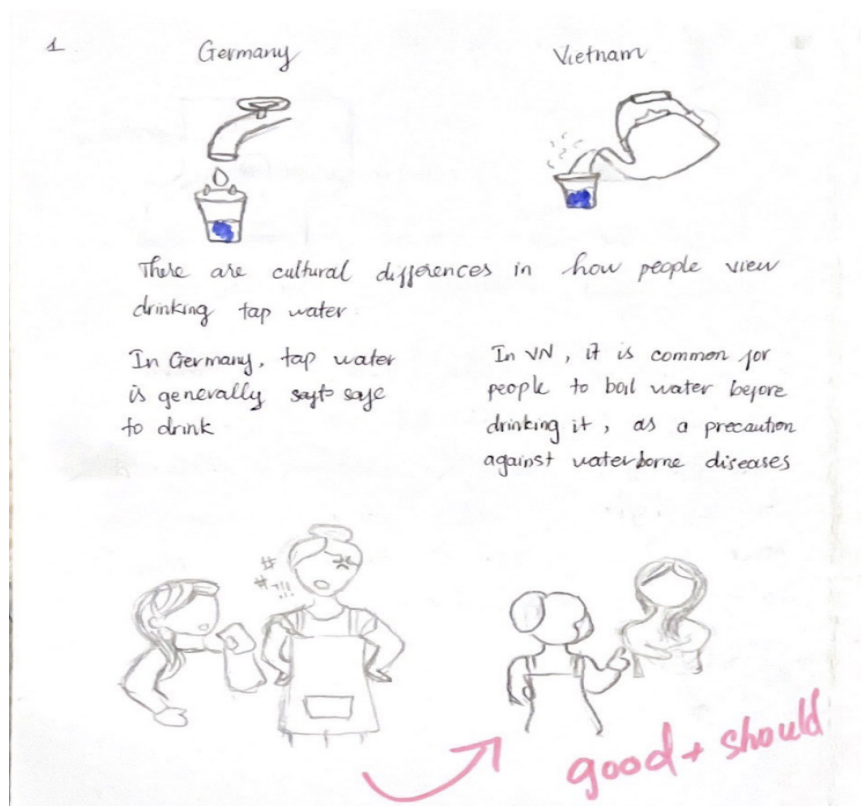 1
Germany
Vietnam
There are cultural differences in how people view
drinking tap water
In Germany, tap water
is generally sayt safe
to drink
In VN, it is common for
people to boil water before
drinking it, as a precaution
against waterborne diseases
# 
#-!!!
good + should